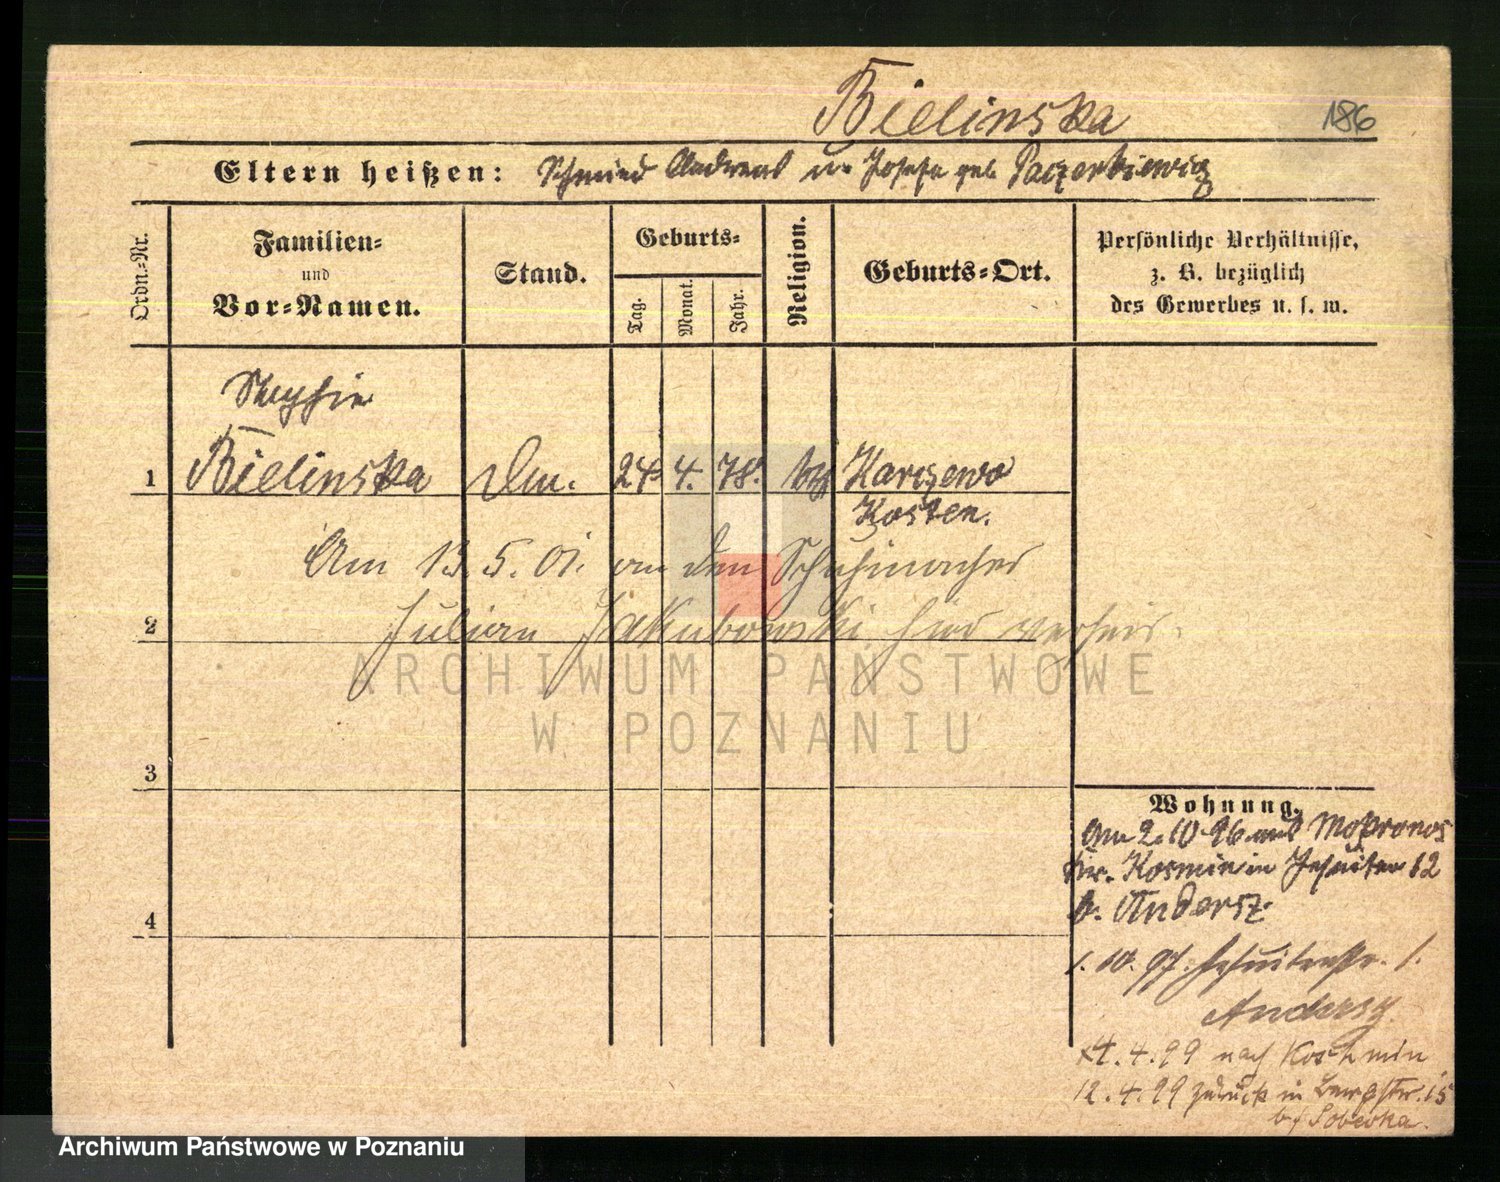 Bielinska
186
Eltern heißen: Schmied Andreas u. Josefa geb. Paczerkiewicz
Ordn.-Nr.
Familien-
und
Vor-Namen.
Stand.
Geburts-
Tag.
Monat.
Jahr.
Religion.
Geburts-Ort.
Persönliche Verhältnisse,
z. B. bezüglich
des Gewerbes u. s. w.
1 Bielinska 24. 4. 78. Karczewo
Kosten.
Am 13. 5. 01. an den Schuhmacher
2 Julian Jakubowski hier verheir.
ARCHIWUM PAŃSTWOWE
W POZNANIU
3
4
Wohnung.
Am 2. 10. 96 aus
Kosmin in Jesuiten 12
b. Andersz.
1. 10. 97. Jesuitenstr. 1.
Andersz.
4. 4. 99 nach Koschmin
12. 4. 99 zurück in 15
b/ Sobecka.
Archiwum Państwowe w Poznaniu